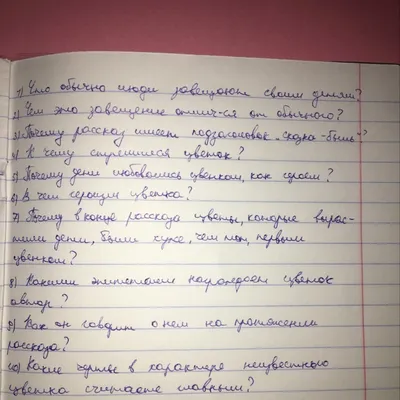 1) Что обычно люди завещают своим детям?
2) Чем это завещение отлич-ся от обычного?
3) Почему рассказ имеет подзаголовок „сказка-быль“?
4) К чему стремился цветок?
5) Почему дети любовались цветком, как героем?
6) В чём героизм цветка?
7) Почему в конце рассказа цветы, которые вырас-
тили дети, были хуже, чем тот, первым
цветком?
8) Какими эпитетами награждает цветок
автор?
9) Как он говорит о нём на протяжении
рассказа?
10) Какие черты в характере неизвестного
цветка считаете главными?